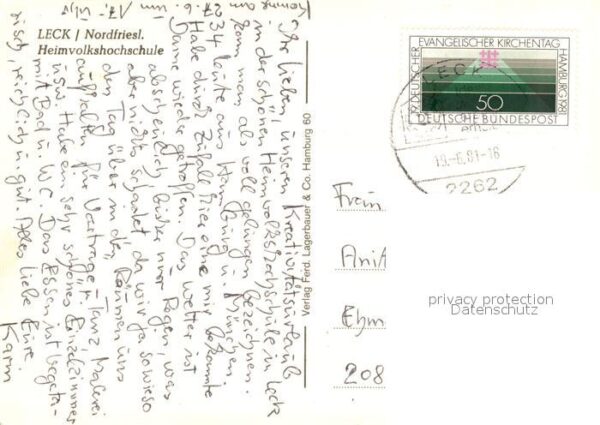 LECK / Nordfriesl.
Heimvolkshochschule
Komme am
27. 6.
um
17. Uhr
Ihr Lieben, unseren Kreativitätsurlaub
in der schönen Heimvolkshochschule in Leck
kann man als voll gelungen bezeichnen.
34 Leute aus Hamburg u. München.
Habe durch Zufall hier eine mir bekannte
Dame wieder getroffen. Das Wetter ist
abscheulich, bisher nur Regen, was
aber nichts schadet da wir ja sowieso
den Tag über in den Räumen uns
aufhalten für Vorträge – Tanz, Malerei
usw. Habe ein sehr schönes Einzelzimmer
mit Bad u. WC. Das Essen ist vegeta-
risch, reichlich u. gut. Alles Liebe Eure
Karin
Verlag Ferd. Lagerbauer & Co. Hamburg 60
19. DEUTSCHER EVANGELISCHER KIRCHENTAG HAMBURG 1981
50
DEUTSCHE BUNDESPOST
LECK
-6.81-16
2262
Frau
Anit
Ehm
208
privacy protection
Datenschutz